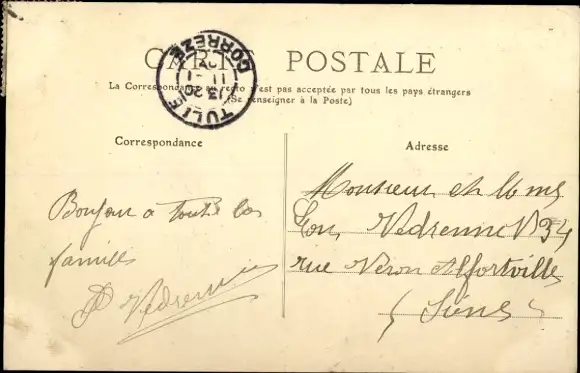 CARTE POSTALE
La Correspondance au recto n'est pas acceptée par tous les pays étrangers
(Se renseigner à la Poste)
TULLE
13 20
11 - 1
CORREZE
Correspondance
Adresse
Bonjour a toute la
famille
Vedrenne
Monsieur et Mme
Vedrenne 34
rue Véron Alfortville
(Seine)